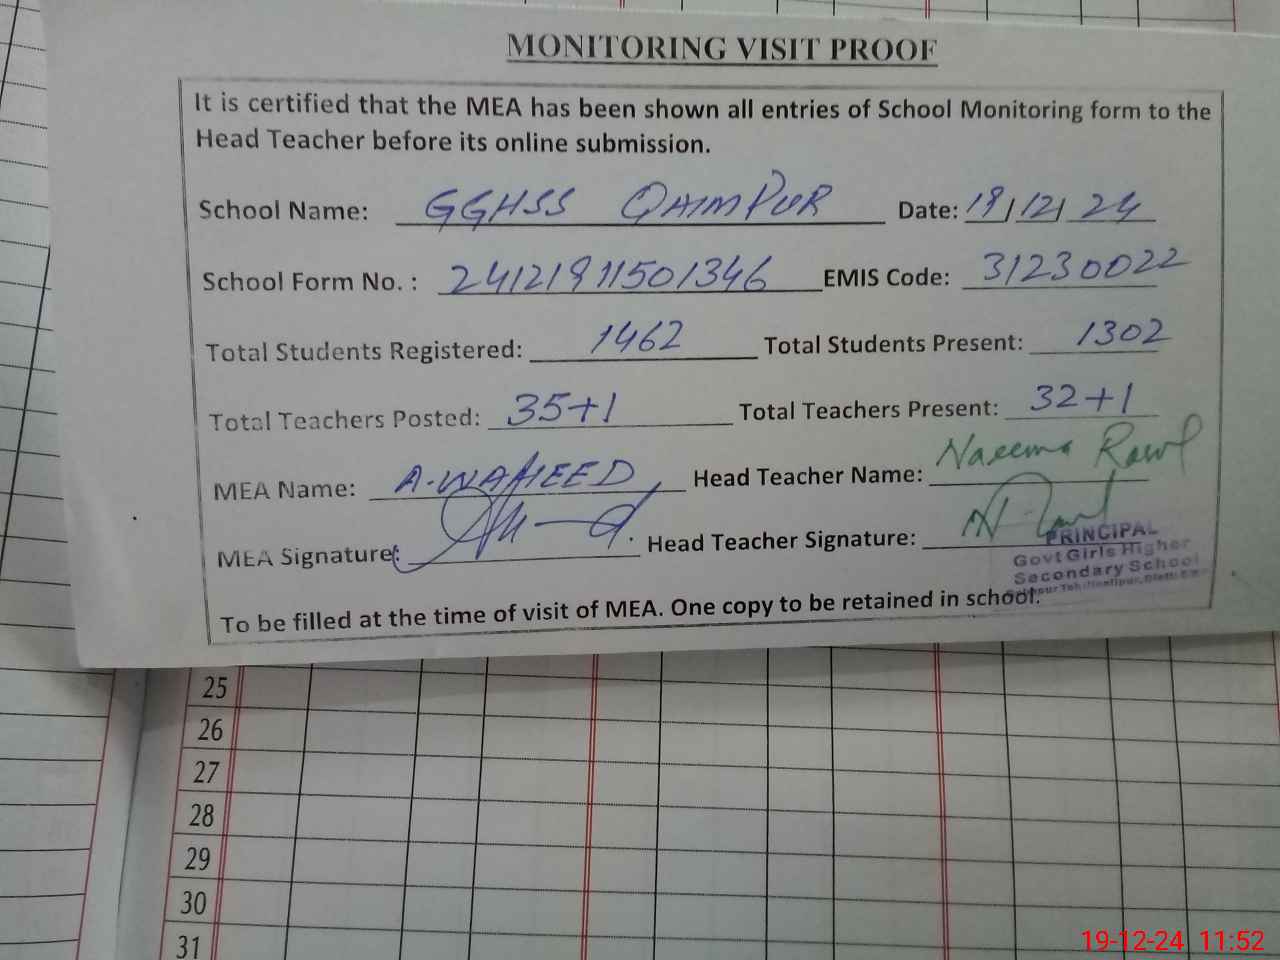 MONITORING VISIT PROOF
It is certified that the MEA has been shown all entries of School Monitoring form to the
Head Teacher before its online submission.
School Name: GGHSS QAIMPUR Date: 19/12/24
School Form No. : 24121911501346 EMIS Code: 31230022
Total Students Registered: 1462 Total Students Present: 1302
Total Teachers Posted: 35+1 Total Teachers Present: 32+1
MEA Name: A.WAHEED Head Teacher Name: Naeema Rawf
MEA Signature: Head Teacher Signature:
PRINCIPAL
Govt Girls Higher
Secondary School
To be filled at the time of visit of MEA. One copy to be retained in school.
25
26
27
28
29
30
31
19-12-24 11:52